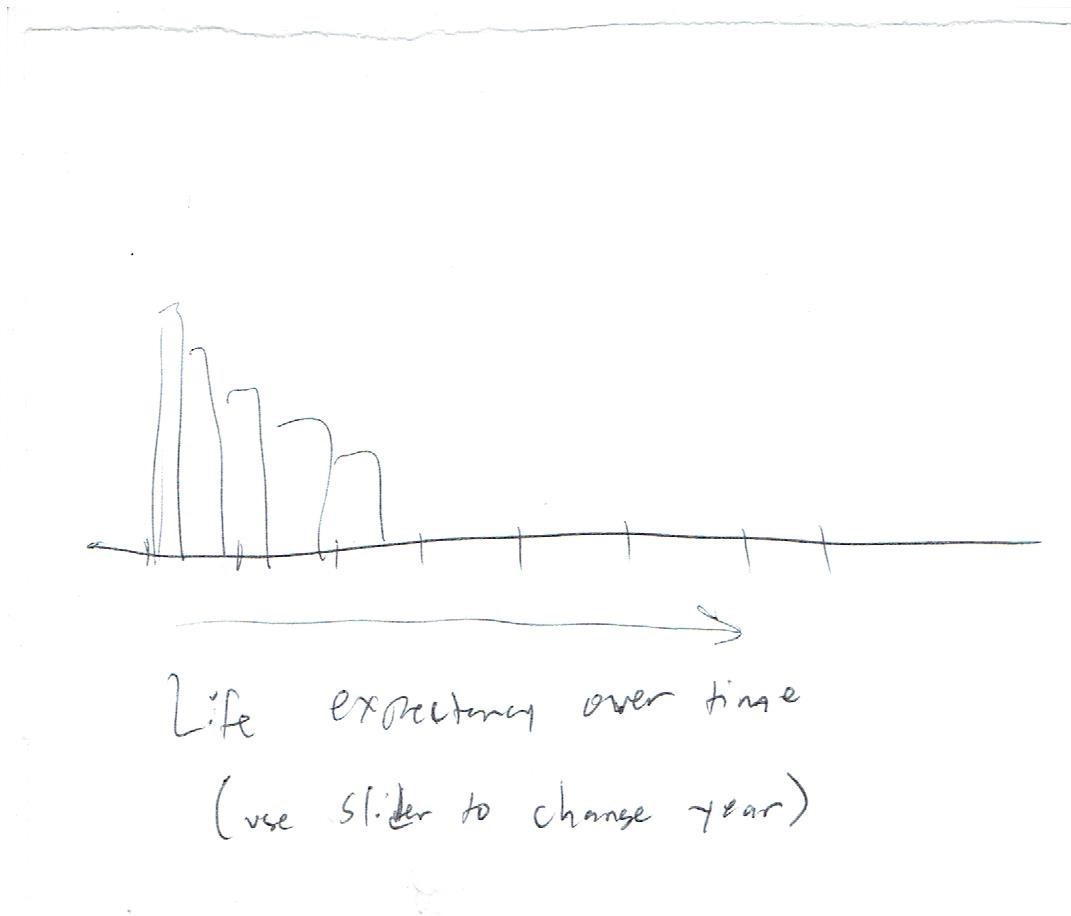 Life expectancy over time
(use slider to change year)